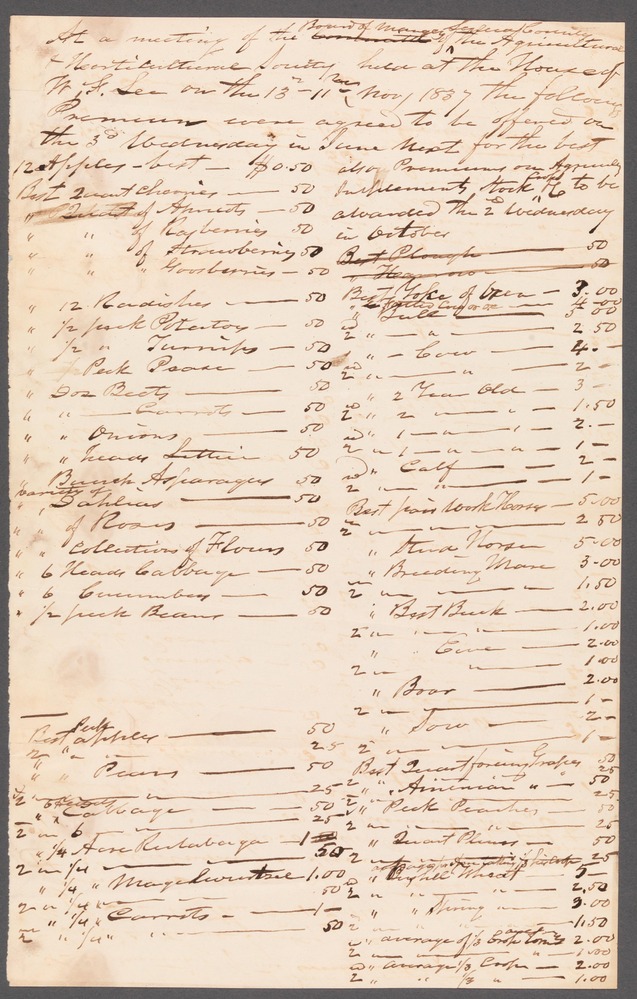 At a meeting of the Board of Managers of the Agricultural
& Horticultural Society held at the House of
W. F. Lee on the 13th 11 Nov 1837 the following
Premium were agreed to be offered on
the 3d Wednesday in June Next for the best
12 Apples - best — $0.50
Best Quart Cherries — 50
" Quart of Apricots — 50
" " of Rasberries 50
" " of Strawberries 50
" " " Goosberries — 50
" 12 Radishes — 50
" 1/2 peck Potatoes — 50
" 1/2 " Turnips — 50
" Peck Pease — 50
" Doz Beets — 50
" " — Carrots — 50
" " Onions — 50
" " heads Lettice 50
" Bunch Asparagus 50
" variety of Dahlias — 50
" " of Roses — 50
" " collections of Flours 50
" 6 Heads Cabbage — 50
" 6 Cucumbers — 50
" 1/2 peck Beans — 50
Best Peck apples — 50
2 " " 25
" " Pears — 50
2 " " — 25
" 6 Cabbage — 50
2 " 6 — 25
" 1/4 Acre Rutabaga — 1
2 " 1/4 — 50
" 1/4 " 1.00
2 " 1/4 " 50
" 1/4 " Carrots — 1-
2 " 1/4 " 50
also Premiums on Agricultu
Implements Stock Crops &c to be
awarded the 2d Wednesday
in October
Best Plough — 50
" Harrow — 50
Best Yoke of Oxen — 3.00
" Bull — 5.00
2 " — " — 2 50
" — Cow — 4.-
2 " — " — 2 -
" 2 Year Old — 3 -
2 " 2 — " — 1.50
" 1 — " — " — 2.-
2 " 1 — " — " 1-
" Calf — 2 -
2 " " — 1 -
Best pair Work Horses — 5.00
2 " — " — " 2 50
" Stud Horse 5-00
" Breeding Mare 3-00
2 " — " — 1.50
" Best Buck — 2.00
2 " — " — 1.00
" Ewe — 2.00
2 " " — 1 00
" Boar — 2.00
2 " — " — 1-
" Sow — 2-
2 " — " — 1-
Best Quart foreign Grapes 50
2 " " 25
" American " — 50
2 " " 25
" Peck Peaches — 50
2 " " — 25
" Quart Plums — 50
2 " 25
" Wheat 5-
2 " " " — 2.50
" " Spring " — 3.00
2 " " " — 1.50
" average of 1/3 Crop Corn 2.00
2 " " 1.00
" average 1/3 Crop — 2.00
2 " " 1/3 " — 1.00